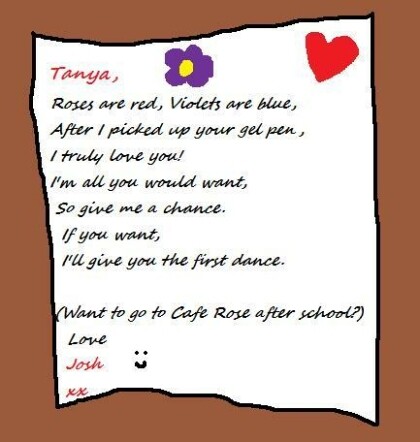 Tanya,
Roses are red, Violets are blue,
After I picked up your gel pen,
I truly love you!
I'm all you would want,
So give me a chance.
If you want,
I'll give you the first dance.
(Want to go to Cafe Rose after school?)
Love
Josh
xx